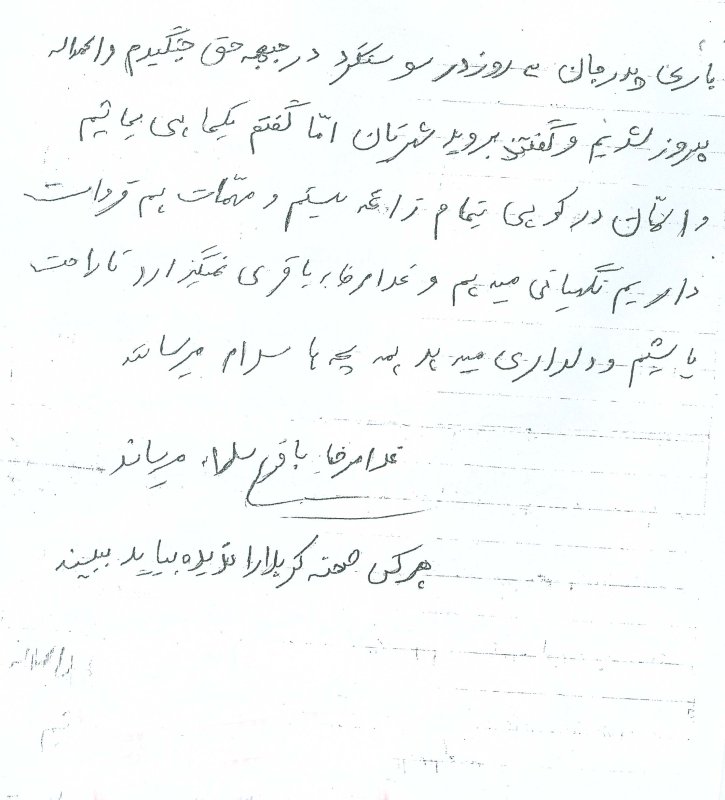 باری پدر جان ۳ روز در سوسنگرد در جبهه حق جنگیدم و الحمداله
پیروز شدیم و گفتند بروید شهرتان اما گفتم یکماهی بمانیم
و الان در کوهی بتمام هستیم و مهمات هم
داریم نگهبانی میدهیم و غلامرضا باقری نمیگذارد ناراحت
باشیم و دلداری میدهد همه بچه ها سلام میرسانند
غلامرضا باقری سلام میرساند
هر کس صحنه کربلا را ندیده بیاید ببیند
والحمداله